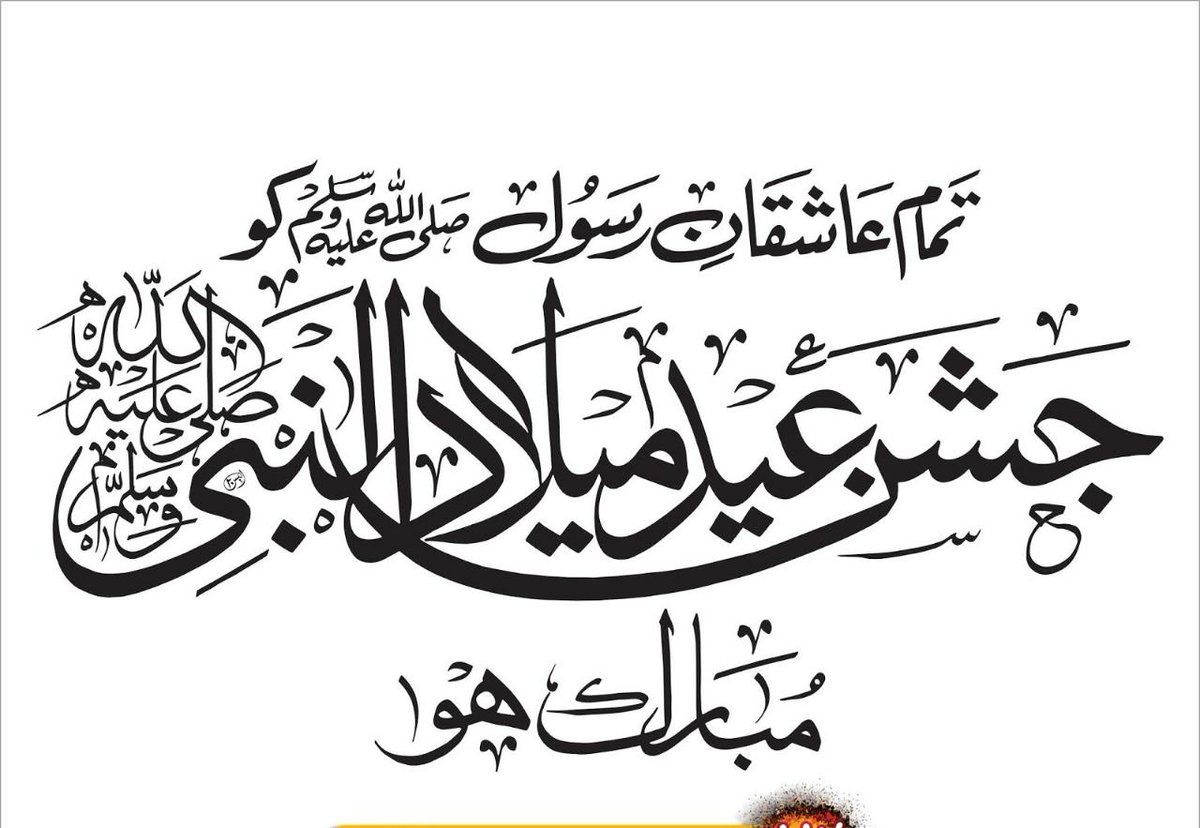 تمام عاشقانِ رسول صلی اللہ علیہ وسلم کو
جشن عید میلاد النبی صلی اللہ علیہ وسلم
مبارک ہو